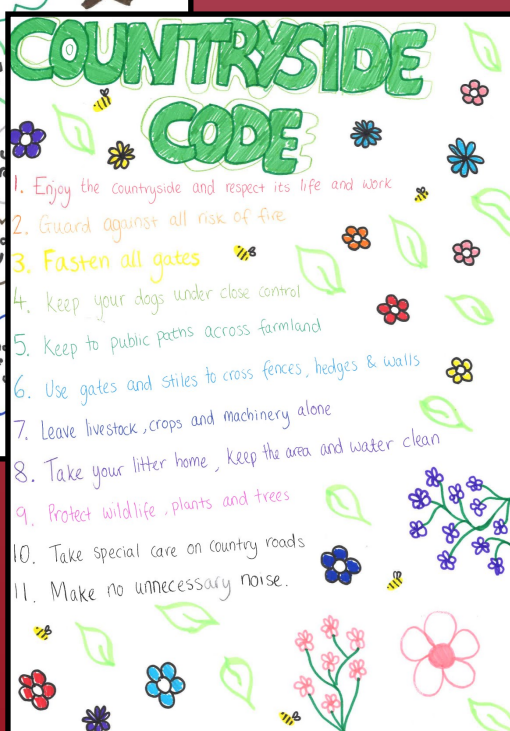 COUNTRYSIDE
CODE
1. Enjoy the countryside and respect its life and work
2. Guard against all risk of fire
3. Fasten all gates
4. Keep your dogs under close control
5. Keep to public paths across farmland
6. Use gates and stiles to cross fences, hedges & walls
7. Leave livestock, crops and machinery alone
8. Take your litter home, Keep the area and water clean
9. Protect wildlife, plants and trees
10. Take special care on country roads
11. Make no unnecessary noise.